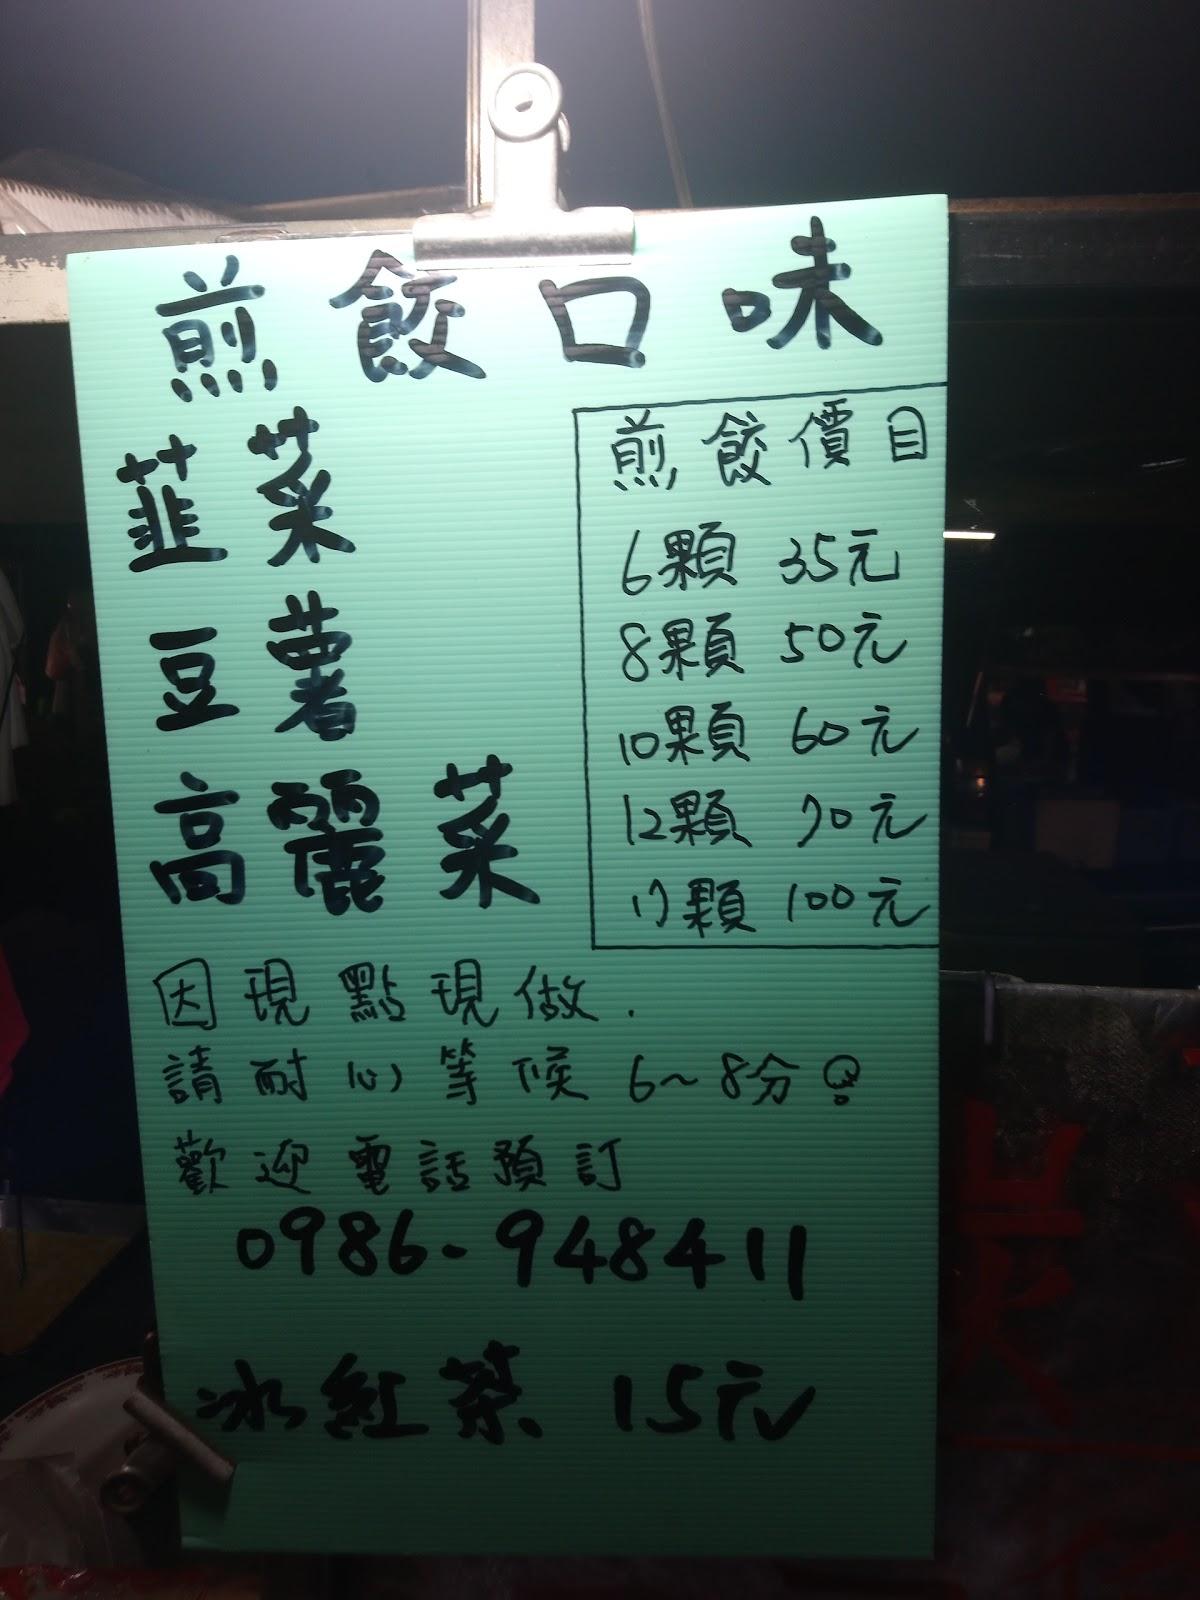 煎餃口味
韮菜
豆薯
高麗菜
煎餃價目
6顆 35元
8顆 50元
10顆 60元
12顆 70元
17顆 100元
因現點現做.
請耐心等候6~8分!
歡迎電話預訂
0986-948411
冰紅茶 15元